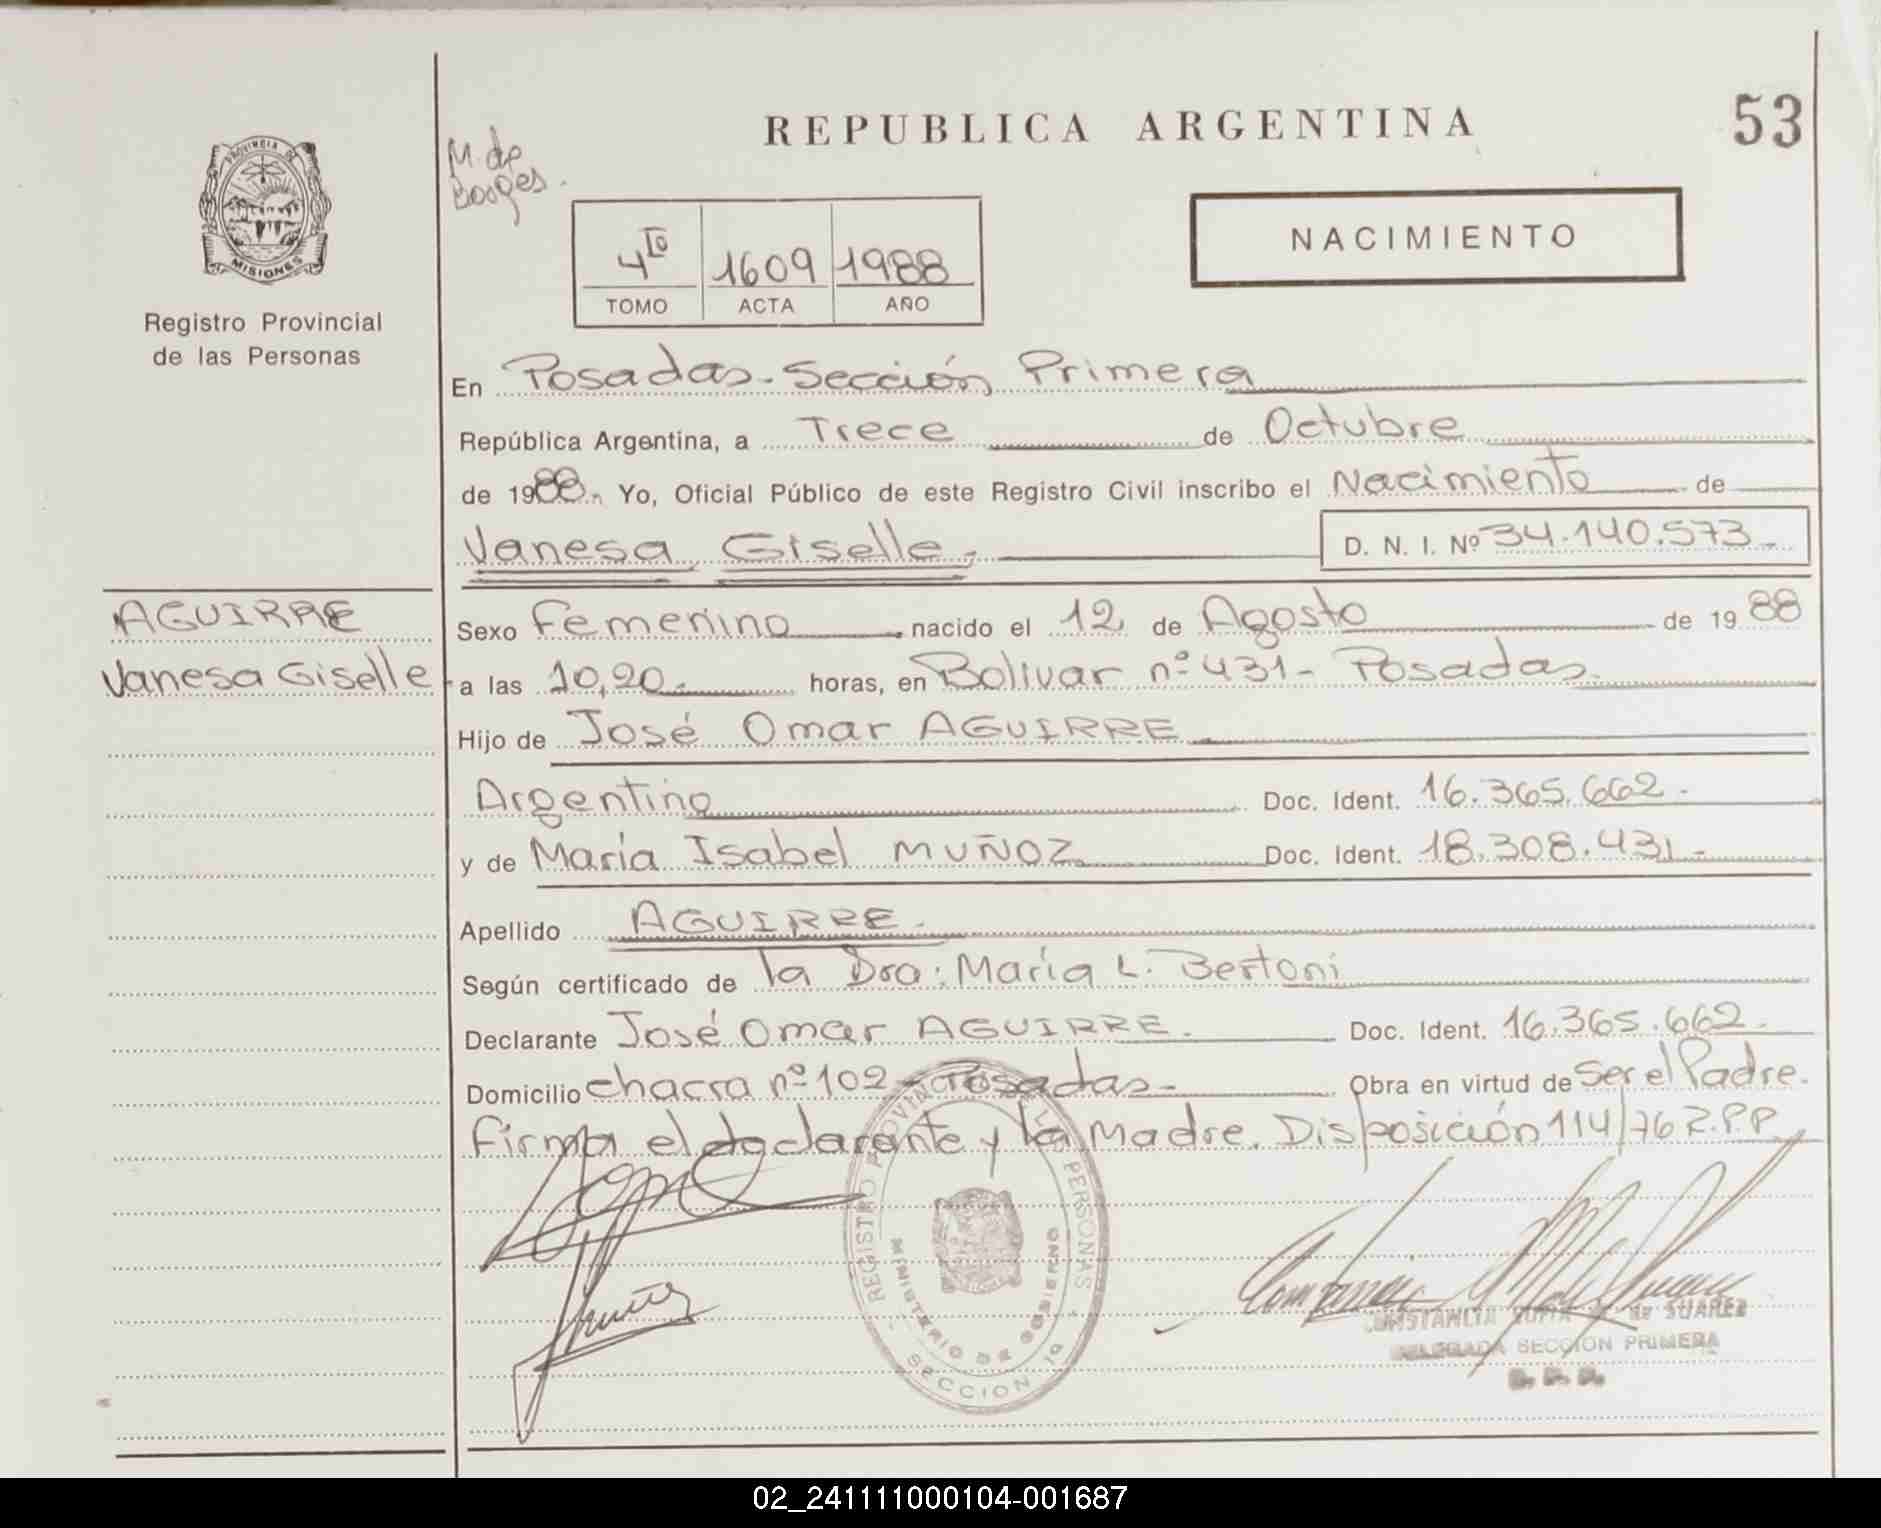 REPUBLICA ARGENTINA
53
M. de
Borges.
PROVINCIA DE
MISIONES
Registro Provincial
de las Personas
4to 1609 1988
TOMO ACTA AÑO
NACIMIENTO
En Posadas - Sección Primera
República Argentina, a Trece de Octubre
de 1988. Yo, Oficial Público de este Registro Civil inscribo el Nacimiento de
Vanesa Giselle.
D. N. I. Nº 34.140.573-
AGUIRRE
Vanesa Giselle
Sexo Femenino nacido el 12 de Agosto de 1988
a las 10,20.- horas, en Bolivar nº 431- Posadas.
Hijo de José Omar AGUIRRE
Argentino Doc. Ident. 16.365.662.-
y de María Isabel MUÑOZ Doc. Ident. 18.308.431-
Apellido AGUIRRE.
Según certificado de la Dra: María L. Bertoni
Declarante José Omar AGUIRRE. Doc. Ident. 16.365.662.
Domicilio chacra nº 102 - Posadas- Obra en virtud de Ser el Padre.
Firma el declarante y la Madre. Disposición 114/76 R.P.P
REGISTRO PROVINCIAL DE LAS PERSONAS
MINISTERIO DE GOBIERNO
SECCION 1a
Muñoz
CONSTANCIA de SUAREZ
DELEGADA SECCION PRIMERA
R. P. P.
02_241111000104-001687